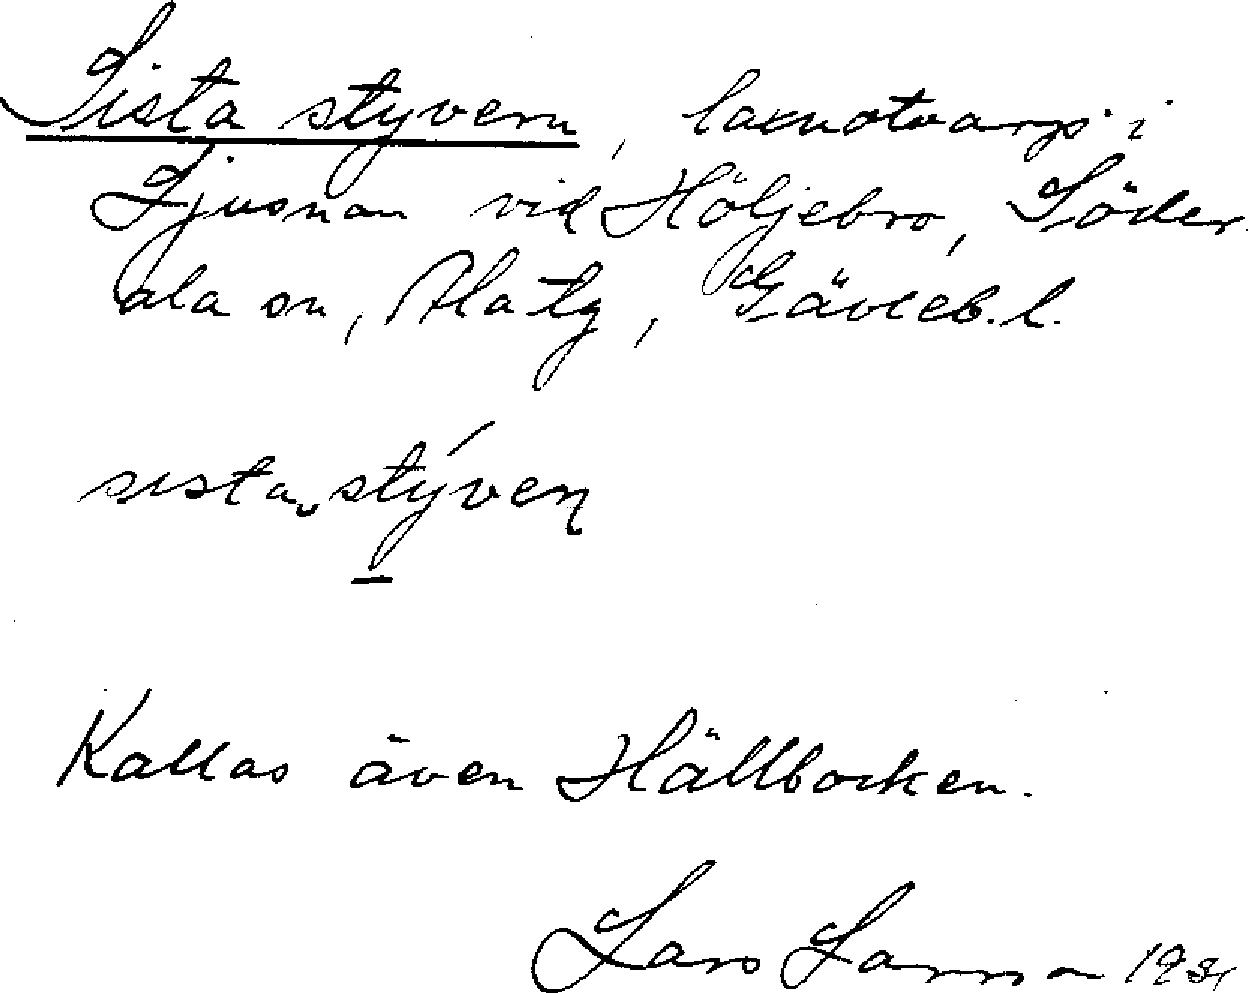 Sista styvern, laxnotvarp i
Ljusnan vid Höljebro, Söder-
ala sn, Ala tg, Gävleb. l.
sista stýven
Kallas även Hällbocken.
Lars Larsson